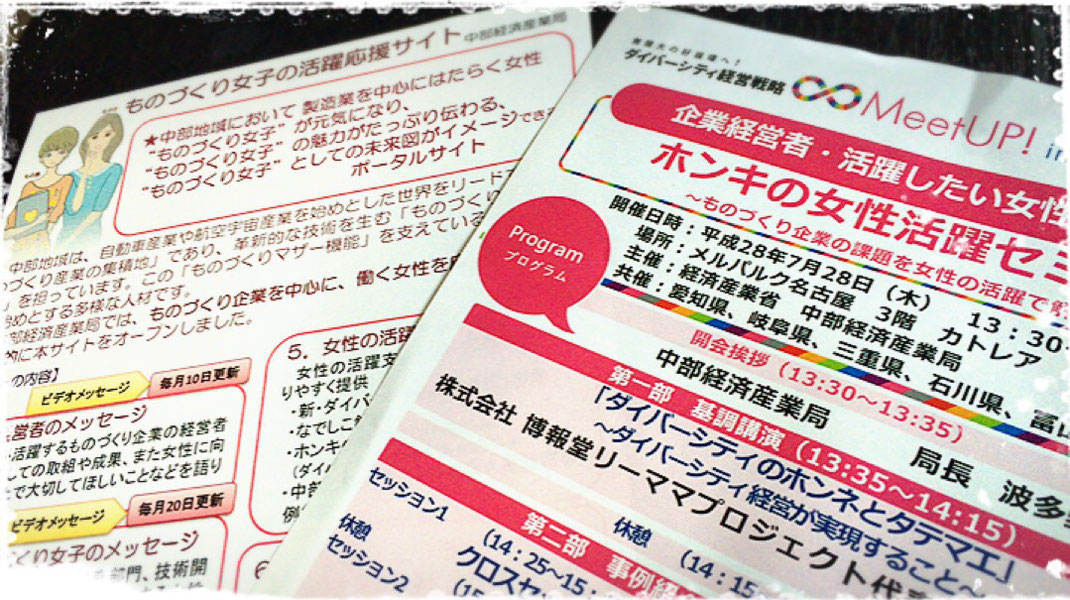 ものづくり女子の活躍応援サイト 中部経済産業局
★中部地域において 製造業を中心にはたらく女性
“ものづくり女子”が元気になり、
“ものづくり女子”の魅力がたっぷり伝わる、
“ものづくり女子”としての未来図がイメージでき
ポータルサイト
中部地域は、自動車産業や航空宇宙産業を始めとした世界をリード
づくり産業の集積地」であり、革新的な技術を生む「ものづくり
」を担っています。この「ものづくりマザー機能」を支えている
始めとする多様な人材です。
部経済産業局では、ものづくり企業を中心に、働く女性を
的に本サイトをオープンしました。
の内容】
ビデオメッセージ 毎月10日更新
営者のメッセージ
活躍するものづくり企業の経営者
しての取組や成果、また女性に向
で大切してほしいことなどを語り
ビデオメッセージ 毎月20日更新
づくり女子のメッセージ
部門、技術開
5. 女性の活躍
女性の活躍支
りやすく提供
・新・ダイバ
・なでしこ
・ホンキの
(ダイバ
・中部
例
6
ダイバーシティ経営戦略
MeetUP! in
企業経営者・活躍したい女性
ホンキの女性活躍セミ
～ものづくり企業の課題を女性の活躍で
Program
プログラム
開催日時：平成28年7月28日（木） 13：30
場所：メルパルク名古屋 3階 カトレア
主催：経済産業省 中部経済産業局
共催：愛知県、岐阜県、三重県、石川県、富山
開会挨拶（13:30～13:35）
中部経済産業局 局長 波多
第一部 基調講演（13:35～14:15）
「ダイバーシティのホンネとタテマエ」
～ダイバーシティ経営が実現すること～
株式会社 博報堂リーママプロジェクト代
休憩 （14：15
第二部 事例紹
セッション1 （14：25～15：
クロスセ
休憩 （15
セッション2